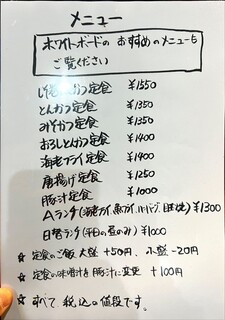 メニュー
ホワイトボードの おすすめのメニューも
ご覧ください
かつ定食 ¥1550
とんかつ定食 ¥1350
みそかつ定食 ¥1350
おろしとんかつ定食 ¥1400
海老フライ定食 ¥1400
唐揚げ定食 ¥1250
豚汁定食 ¥1000
Aランチ(海老フライ,魚フライ,ハンバーグ, ¥1300
日替ランチ(平日の昼のみ) ¥1000
☆ 定食のご飯 大盛 +50円、小盛 -20円
☆ 定食の味噌汁を 豚汁に変更 +100円
☆ すべて 税込の値段です。